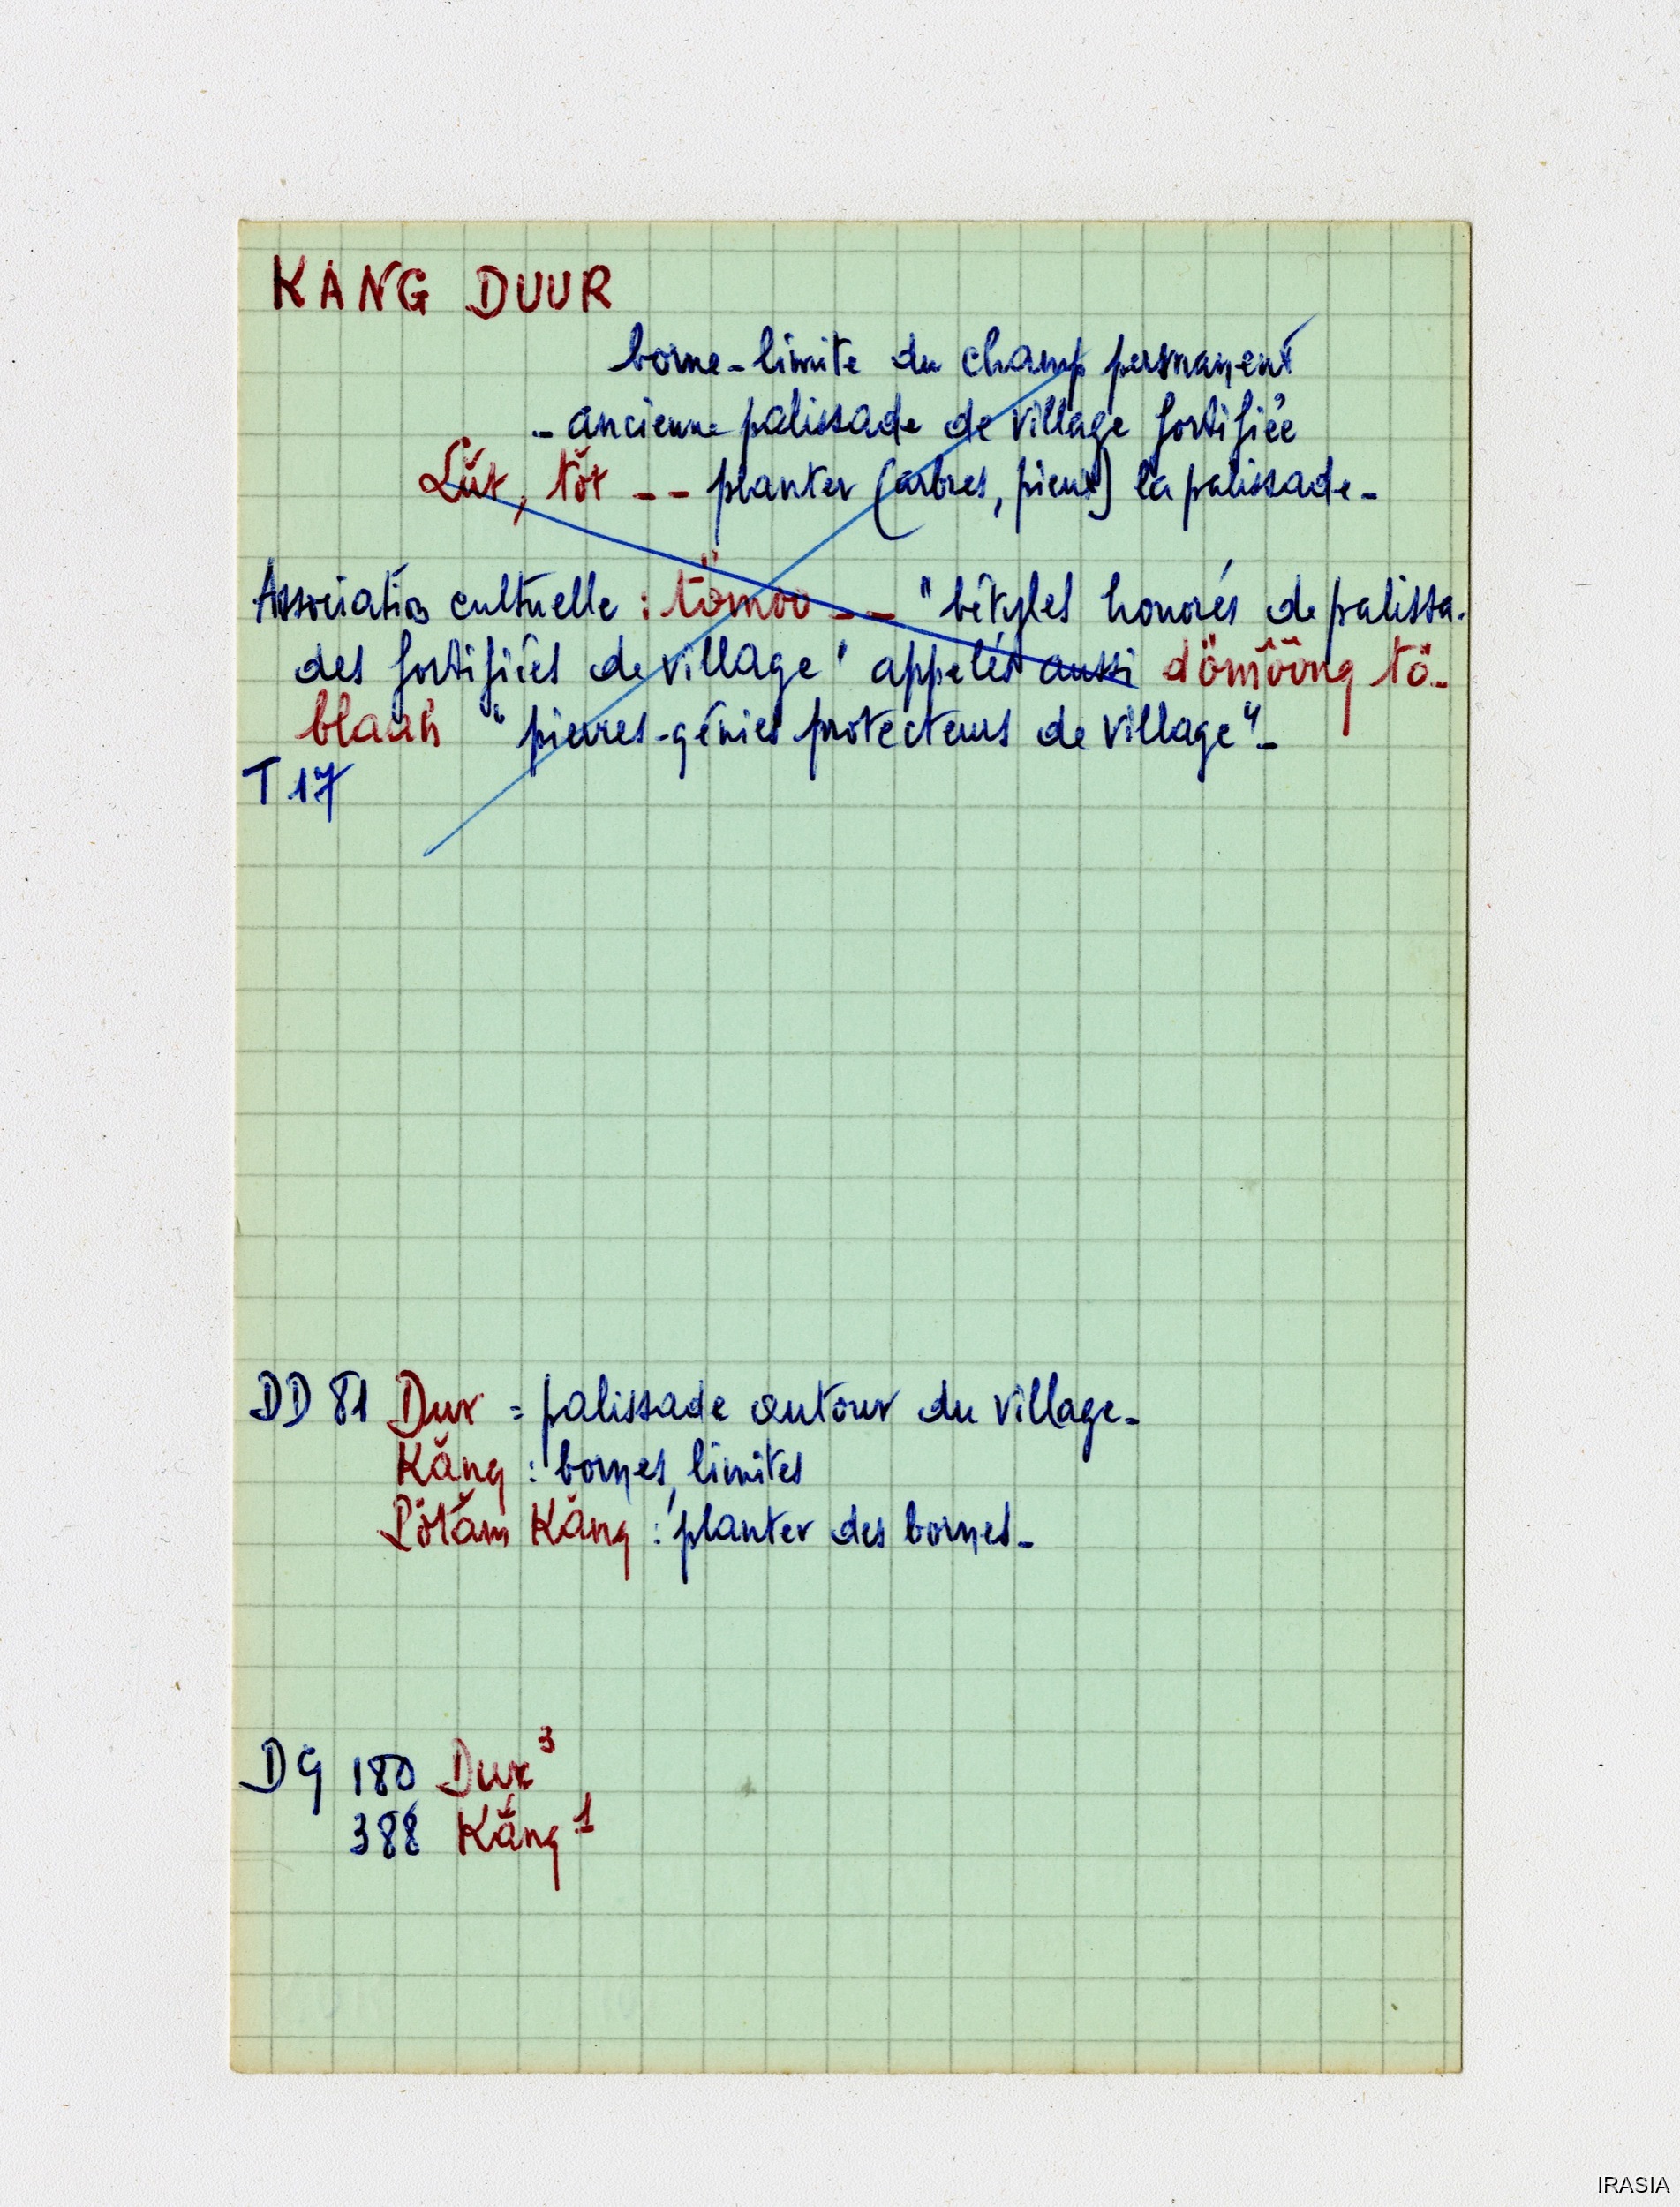 KANG DUUR
borne-limite du champ permanent
- ancienne palissade de village fortifiée
Lŭt, tŏt -- planter (arbres, pieux) la palissade-
Association cultuelle : tömoo -- "bétyles honorés de palissa-
des fortifiées de village" appelés aussi dömôông tö-
blaah "pierres-génies protecteurs de village"-
T 17
DD 81 Dur = palissade autour du village-
Kăng : bornes, limites
Pötăm Kăng : planter des bornes-
DG 180 Dur 3
388 Kăng 1
IRASIA